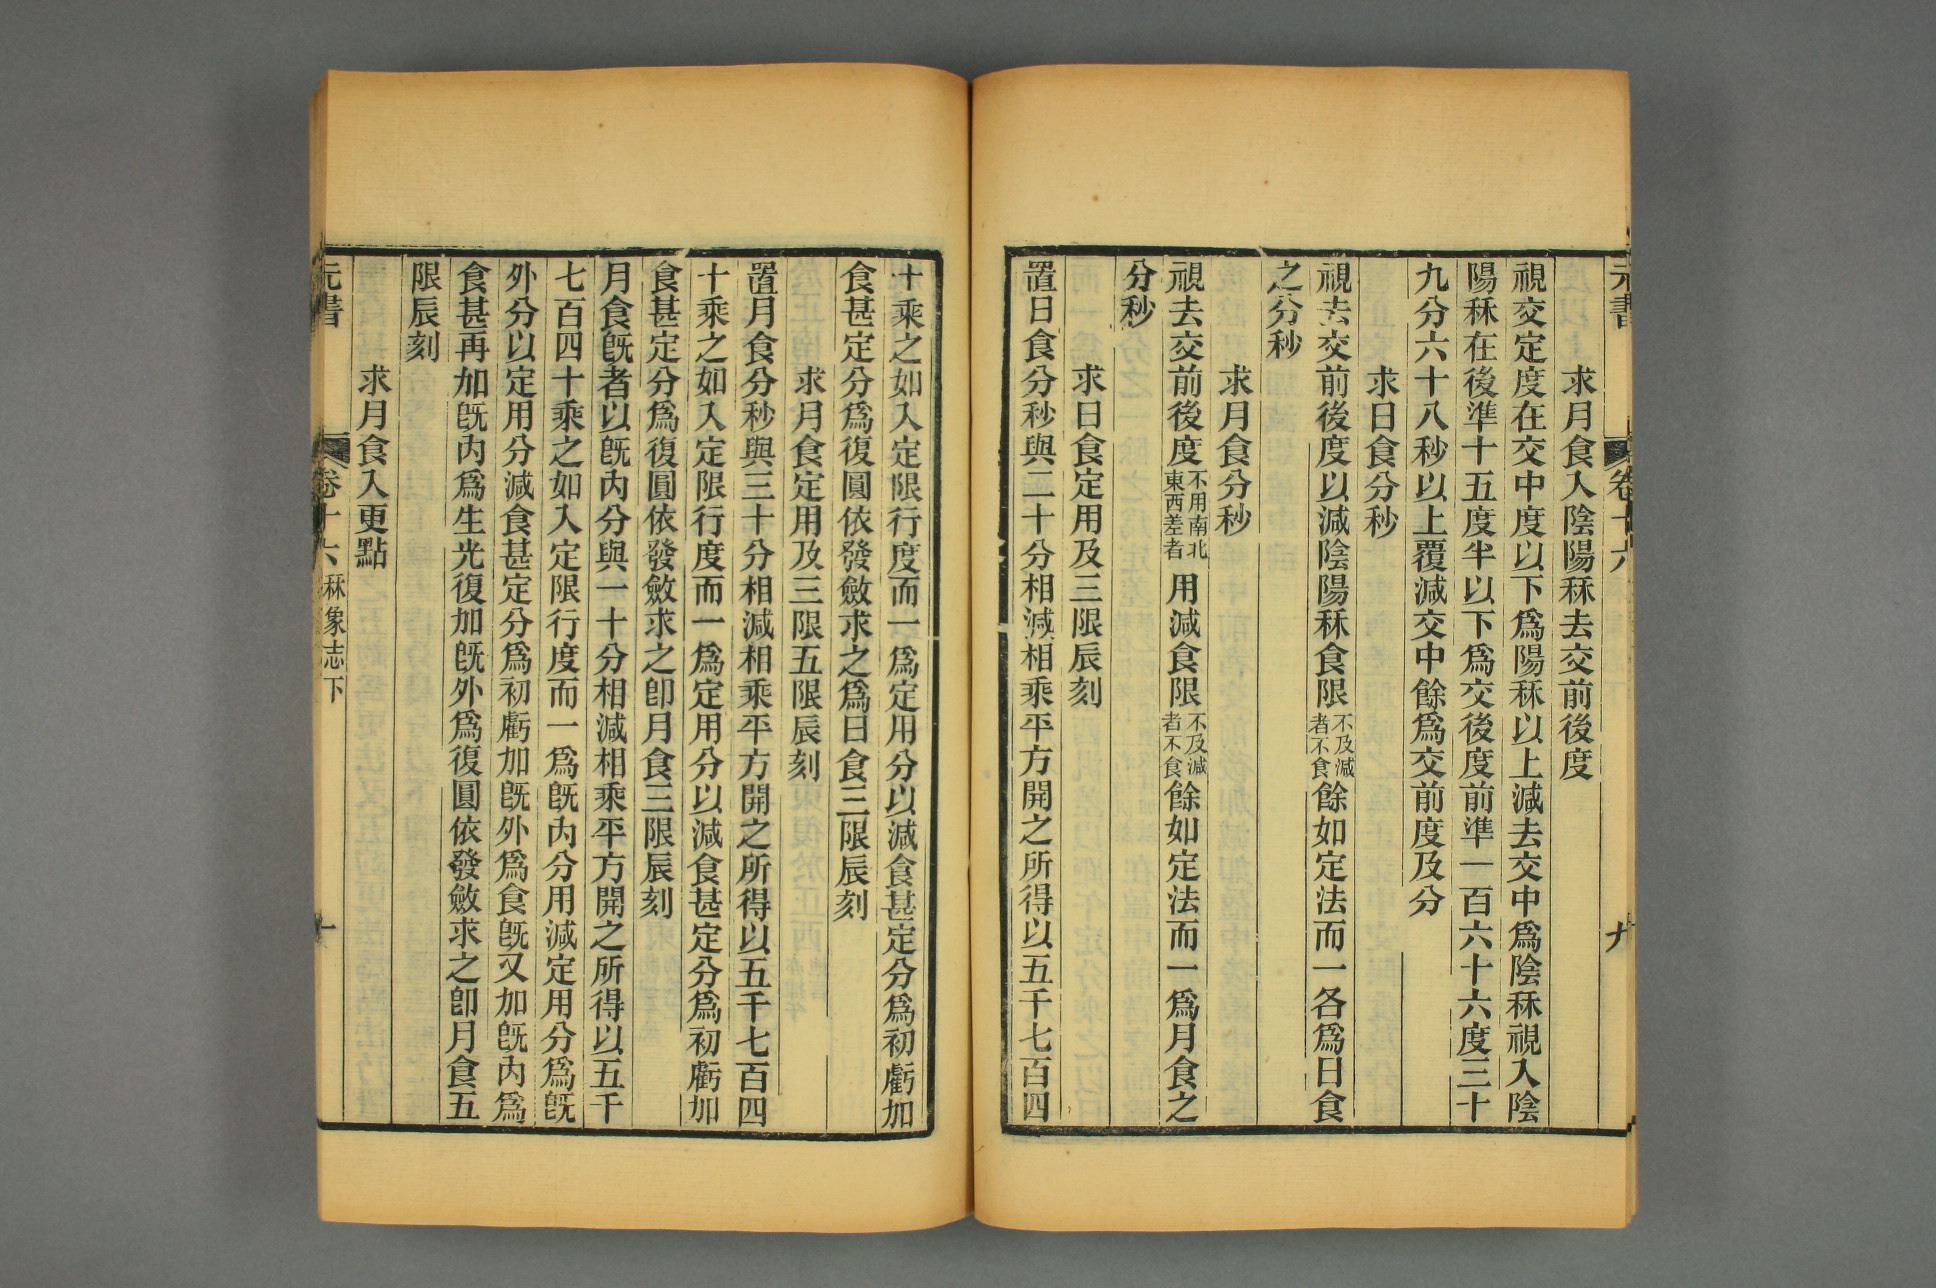 元書 卷十六 九
求月食入陰陽秝去交前後度
視交定度在交中度以下爲陽秝以上減去交中爲陰秝視入陰
陽秝在後準十五度半以下爲交後度前準一百六十六度三十
九分六十八秒以上覆減交中餘爲交前度及分
求日食分秒
視去交前後度以減陰陽秝食限不及減者不食餘如定法而一各爲日食
之分秒
求月食分秒
視去交前後度不用南北東西差者用減食限不及減者不食餘如定法而一爲月食之
分秒
求日食定用及三限辰刻
置日食分秒與二十分相減相乘平方開之所得以五千七百四
十乘之如入定限行度而一爲定用分以減食甚定分爲初虧加
食甚定分爲復圓依發斂求之爲日食三限辰刻
求月食定用及三限五限辰刻
置月食分秒與三十分相減相乘平方開之所得以五千七百四
十乘之如入定限行度而一爲定用分以減食甚定分爲初虧加
食甚定分爲復圓依發斂求之卽月食三限辰刻
月食旣者以旣內分與一十分相減相乘平方開之所得以五千
七百四十乘之如入定限行度而一爲旣內分用減定用分爲旣
外分以定用分減食甚定分爲初虧加旣外爲食旣又加旣內爲
食甚再加旣內爲生光復加旣外爲復圓依發斂求之卽月食五
限辰刻
求月食入更點
元書 卷十六 秝象志下